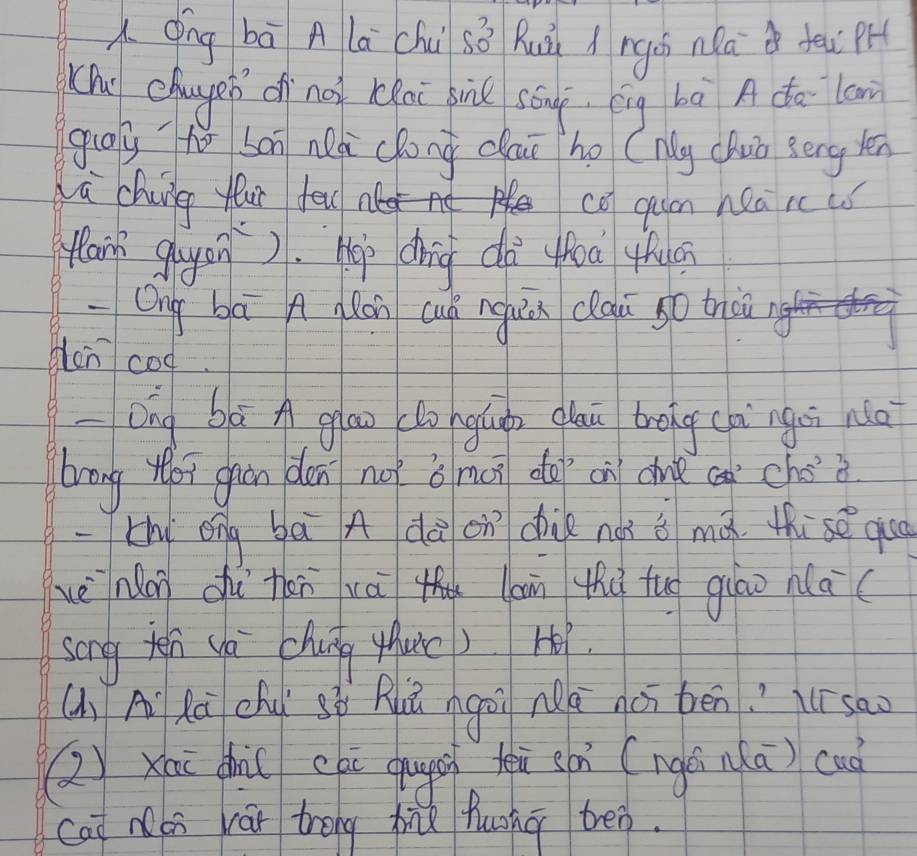 1. Ông bà A là chủ sở hữu 1 ngôi nhà ở tại PH
Khi chuyển đi nơi khác sinh sống, ông bà A đã làm
giấy tờ bán nhà cho người cháu họ (nhưng chưa sang tên
và chứng thực tại cơ quan nhà nc có
thẩm quyền). Hợp đồng đã thoả thuận
- Ông bà A nhận của người cháu 50 triệu
tiền cọc.
- Ông bà A giao cho người cháu trông coi ngôi nhà
trong thời gian đến nơi ở mới để ổn định chỗ ở.
- Khi ông bà A đã ổn định nơi ở mới thì sẽ quay
về nhận đủ tiền và làm thủ tục giao nhà (
sang tên và chứng thực). Hỏi.
(1) Ai là chủ sở hữu ngôi nhà nói trên? Vì sao
(2) Xác định các quyền tài sản (ngôi nhà) của
các nhân vật trong tình huống trên.